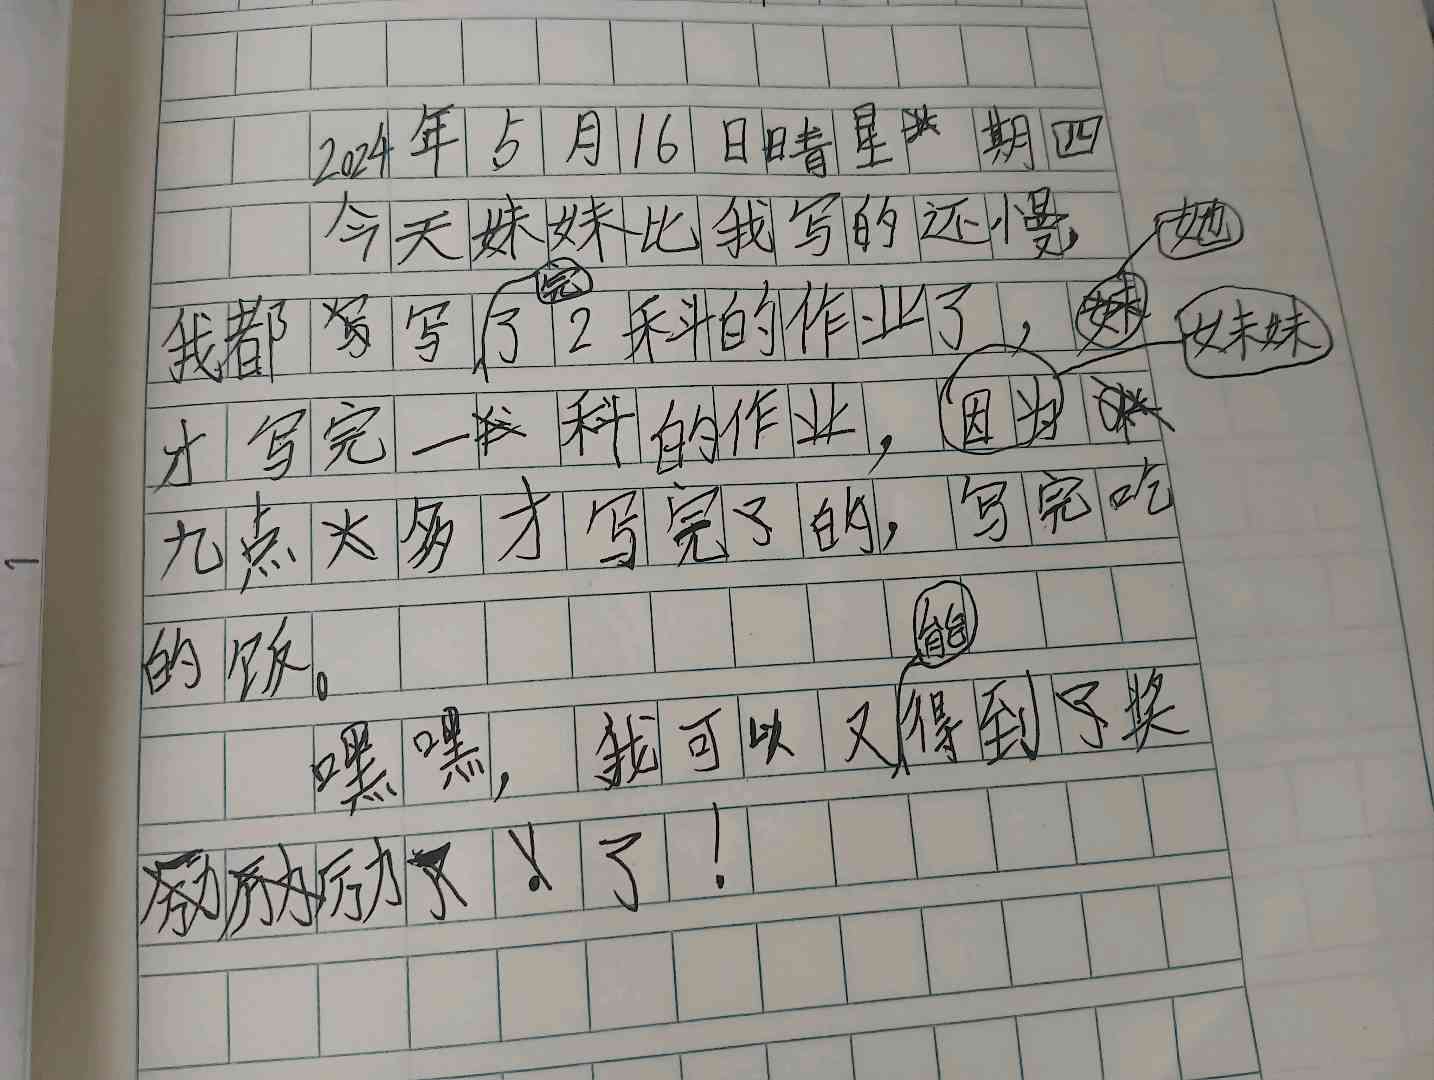 2024年5月16日晴星期四
今天妹妹比我写的还慢,
我都写写完了2科的作业了,她
才写完一科的作业,因为妹妹
九点大多才写完了的,写完吃
的饭。
嘿嘿,我可以又能得到了奖
励了!
1